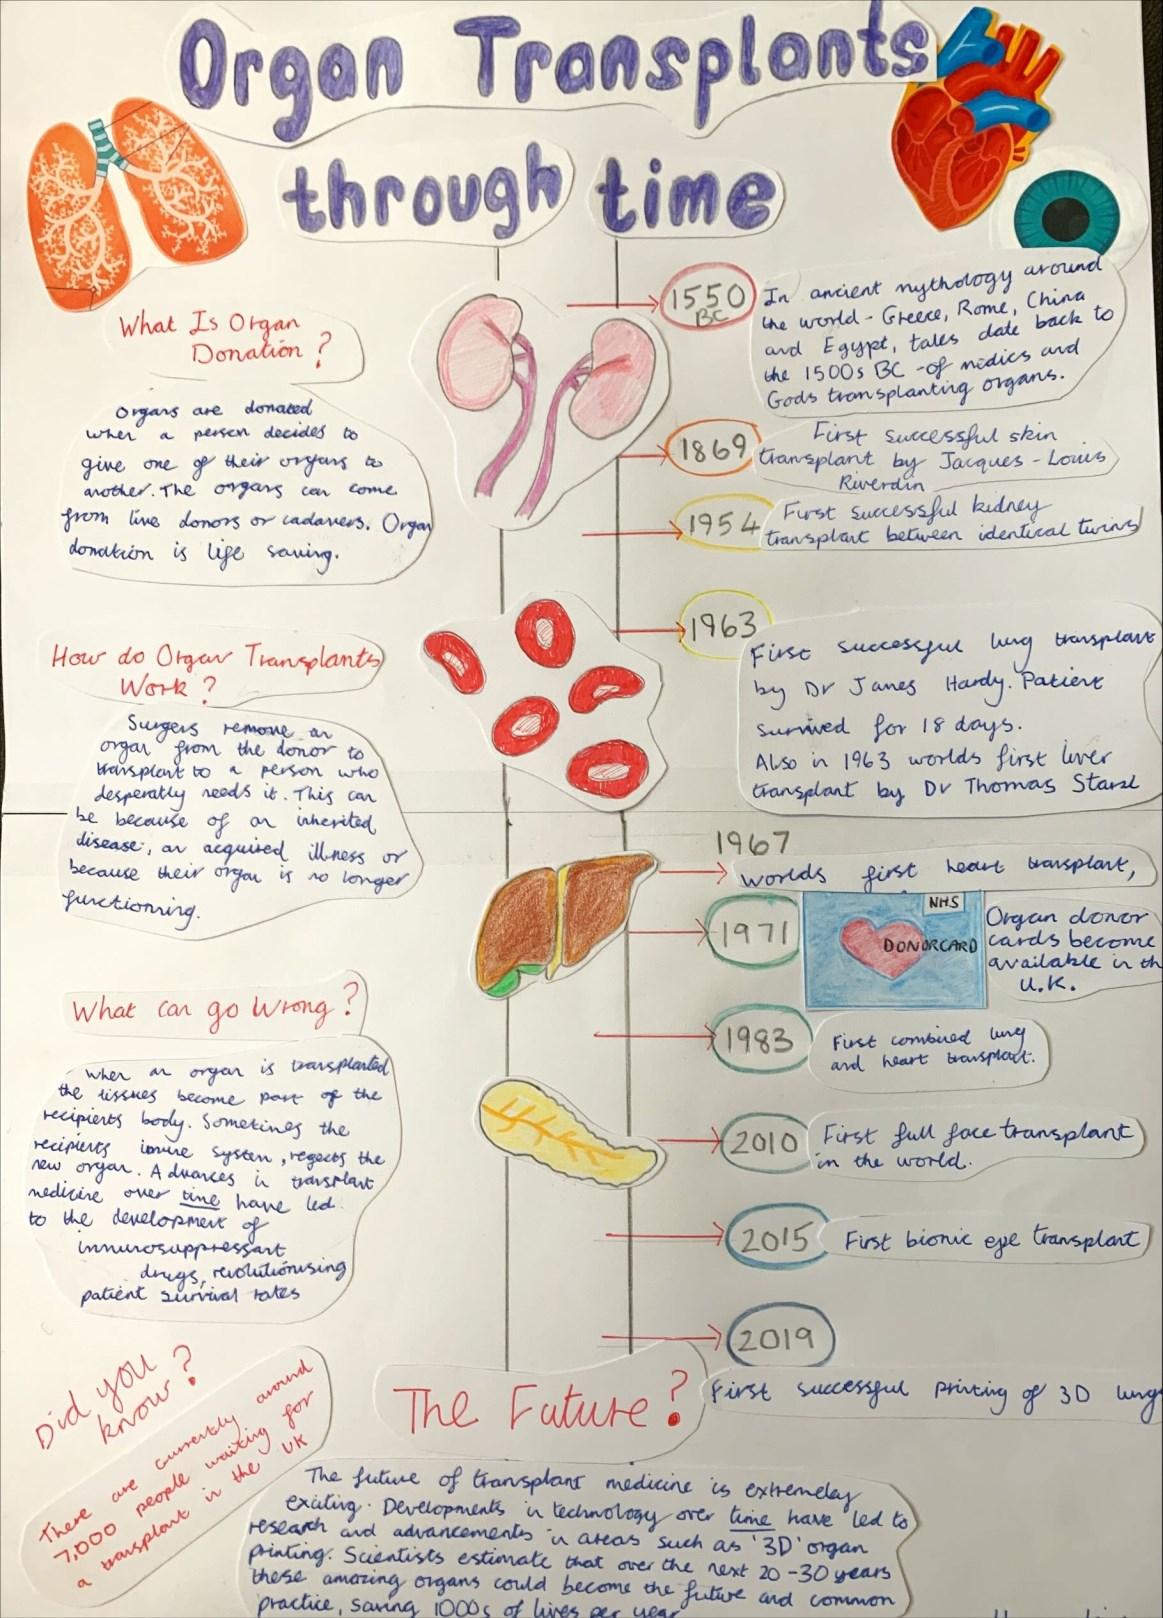 Organ Transplants
through time
What Is Organ
Donation?
Organs are donated
when a person decides to
give one of their organs to
another. The organs can come
from live donors or cadavers. Organ
donation is life saving.
How do Organ Transplants
Work?
Surgeons remove an
organ from the donor to
transplant to a person who
desperatly needs it. This can
be because of an inherited
disease, an acquired illness or
because their organ is no longer
functionning.
What can go Wrong?
When an organ is transplanted
the tissues become part of the
recipients body. Sometimes the
recipients imune system, regects the
new organ. Advances in transplant
medicine over time have led
to the development of
immunosuppressant
drugs, revolutionising
patient survival rates
Did you
know?
There are currently around
7,000 people waiting for
a transplant in the UK
1550
BC
In ancient mythology around
the world - Greece, Rome, China
and Egypt, tales date back to
the 1500s BC - of medics and
Gods transplanting organs.
1869
First successful skin
transplant by Jacques-Louis
Riverdin
1954
First successful kidney
transplant between identical twins
1963
First successful lung transplant
by Dr James Hardy. Patient
survived for 18 days.
Also in 1963 worlds first liver
transplant by Dr Thomas Starzl
1967
worlds first heart transplant,
1971
NHS
DONORCARD
Organ donor
cards become
available in th
U.K.
1983
First combined lung
and heart transplant.
2010
First full face transplant
in the world.
2015
First bionic eye transplant
2019
First successful printing of 3D lungs
The Future?
The future of transplant medicine is extremeley
exciting. Developments in technology over time have led to
research and advancements in areas such as '3D' organ
printing. Scientists estimate that over the next 20-30 years
these amazing organs could become the future and common
practice, saving 1000s of lives per year